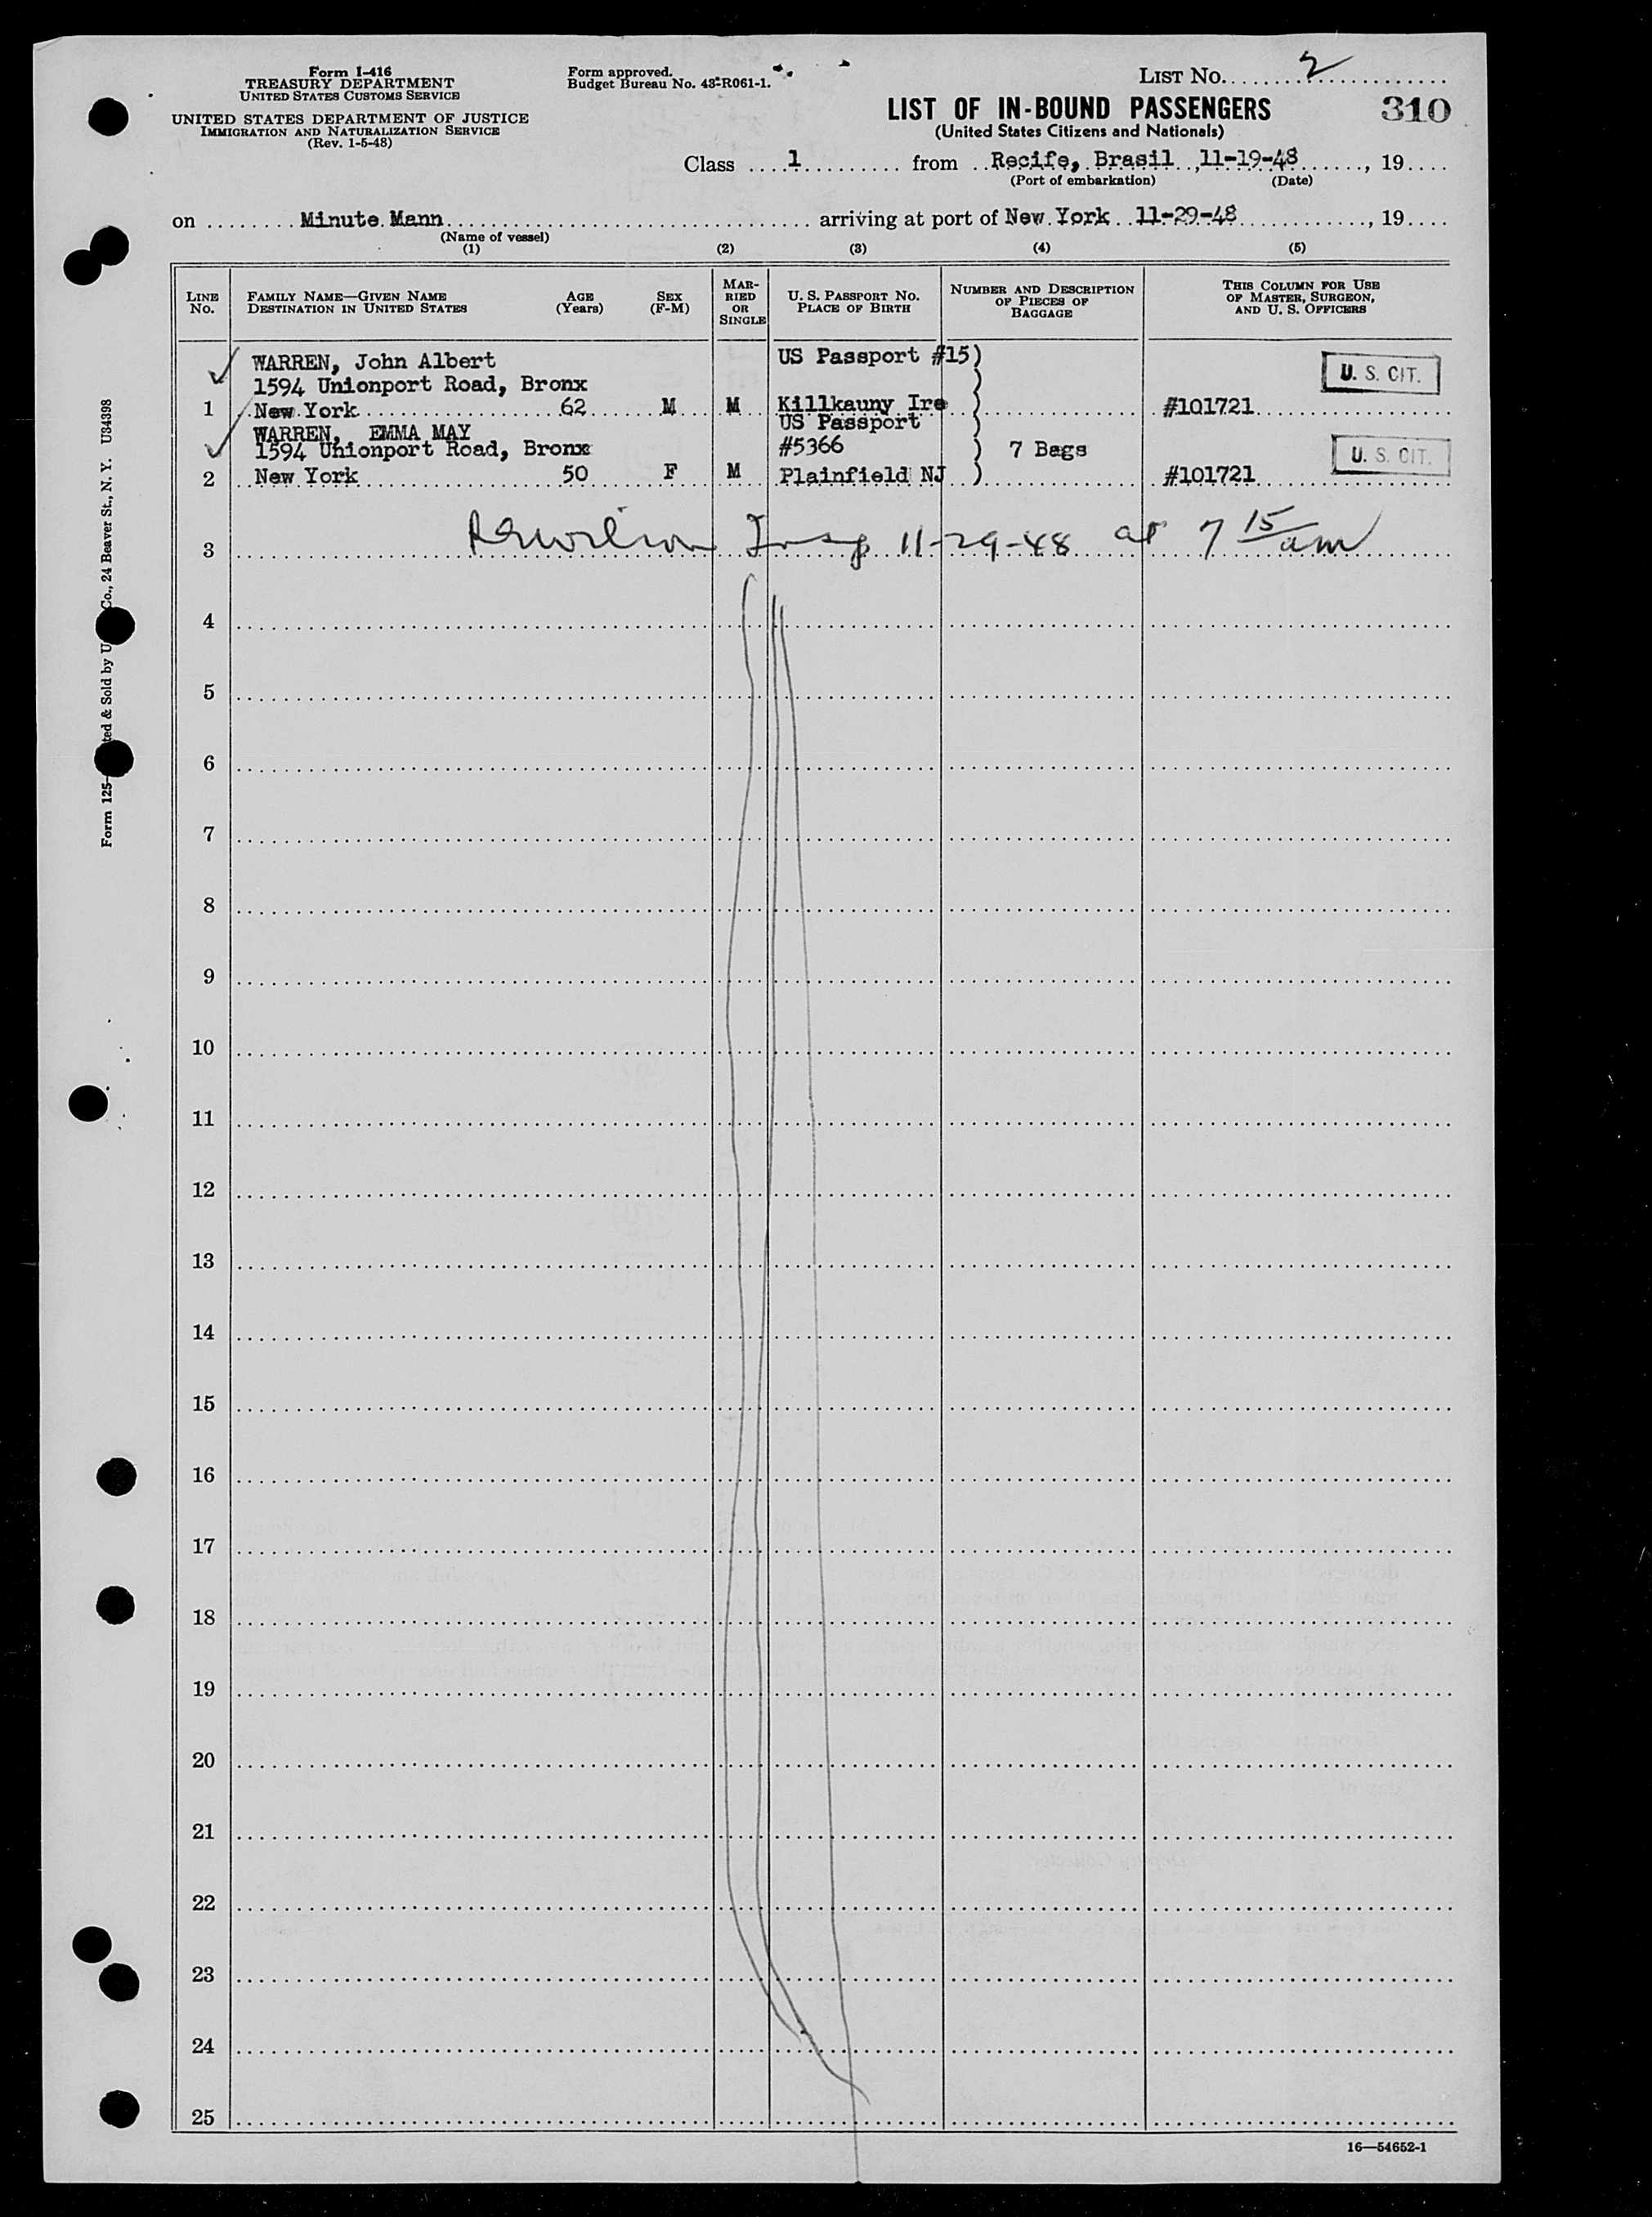 Form I-416
TREASURY DEPARTMENT
UNITED STATES CUSTOMS SERVICE
UNITED STATES DEPARTMENT OF JUSTICE
IMMIGRATION AND NATURALIZATION SERVICE
(Rev. 1-5-48)
Form approved.
Budget Bureau No. 43-R061-1.
LIST NO. 2
LIST OF IN-BOUND PASSENGERS
310
(United States Citizens and Nationals)
Class 1 from Recife, Brasil, 11-19-48, 19
(Port of embarkation) (Date)
on Minute Mann arriving at port of New York 11-29-48, 19
(Name of vessel)
(1) (2) (3) (4) (5)
LINE No.
FAMILY NAME—GIVEN NAME
DESTINATION IN UNITED STATES
AGE (Years)
SEX (F-M)
MARRIED OR SINGLE
U. S. PASSPORT NO.
PLACE OF BIRTH
NUMBER AND DESCRIPTION OF PIECES OF BAGGAGE
THIS COLUMN FOR USE OF MASTER, SURGEON, AND U. S. OFFICERS
WARREN, John Albert US Passport #15)
1594 Unionport Road, Bronx U. S. CIT.
1 New York 62 M M Killkauny Ire #101721
WARREN, EMMA MAY US Passport
1594 Unionport Road, Bronx #5366 7 Bags U. S. CIT.
2 New York 50 F M Plainfield NJ #101721
3 Insp 11-29-48 at 7 15 am
4
5
6
7
8
9
10
11
12
13
14
15
16
17
18
19
20
21
22
23
24
25
16—54652-1
Form 125— ted & Sold by U Co., 24 Beaver St., N. Y. U34398